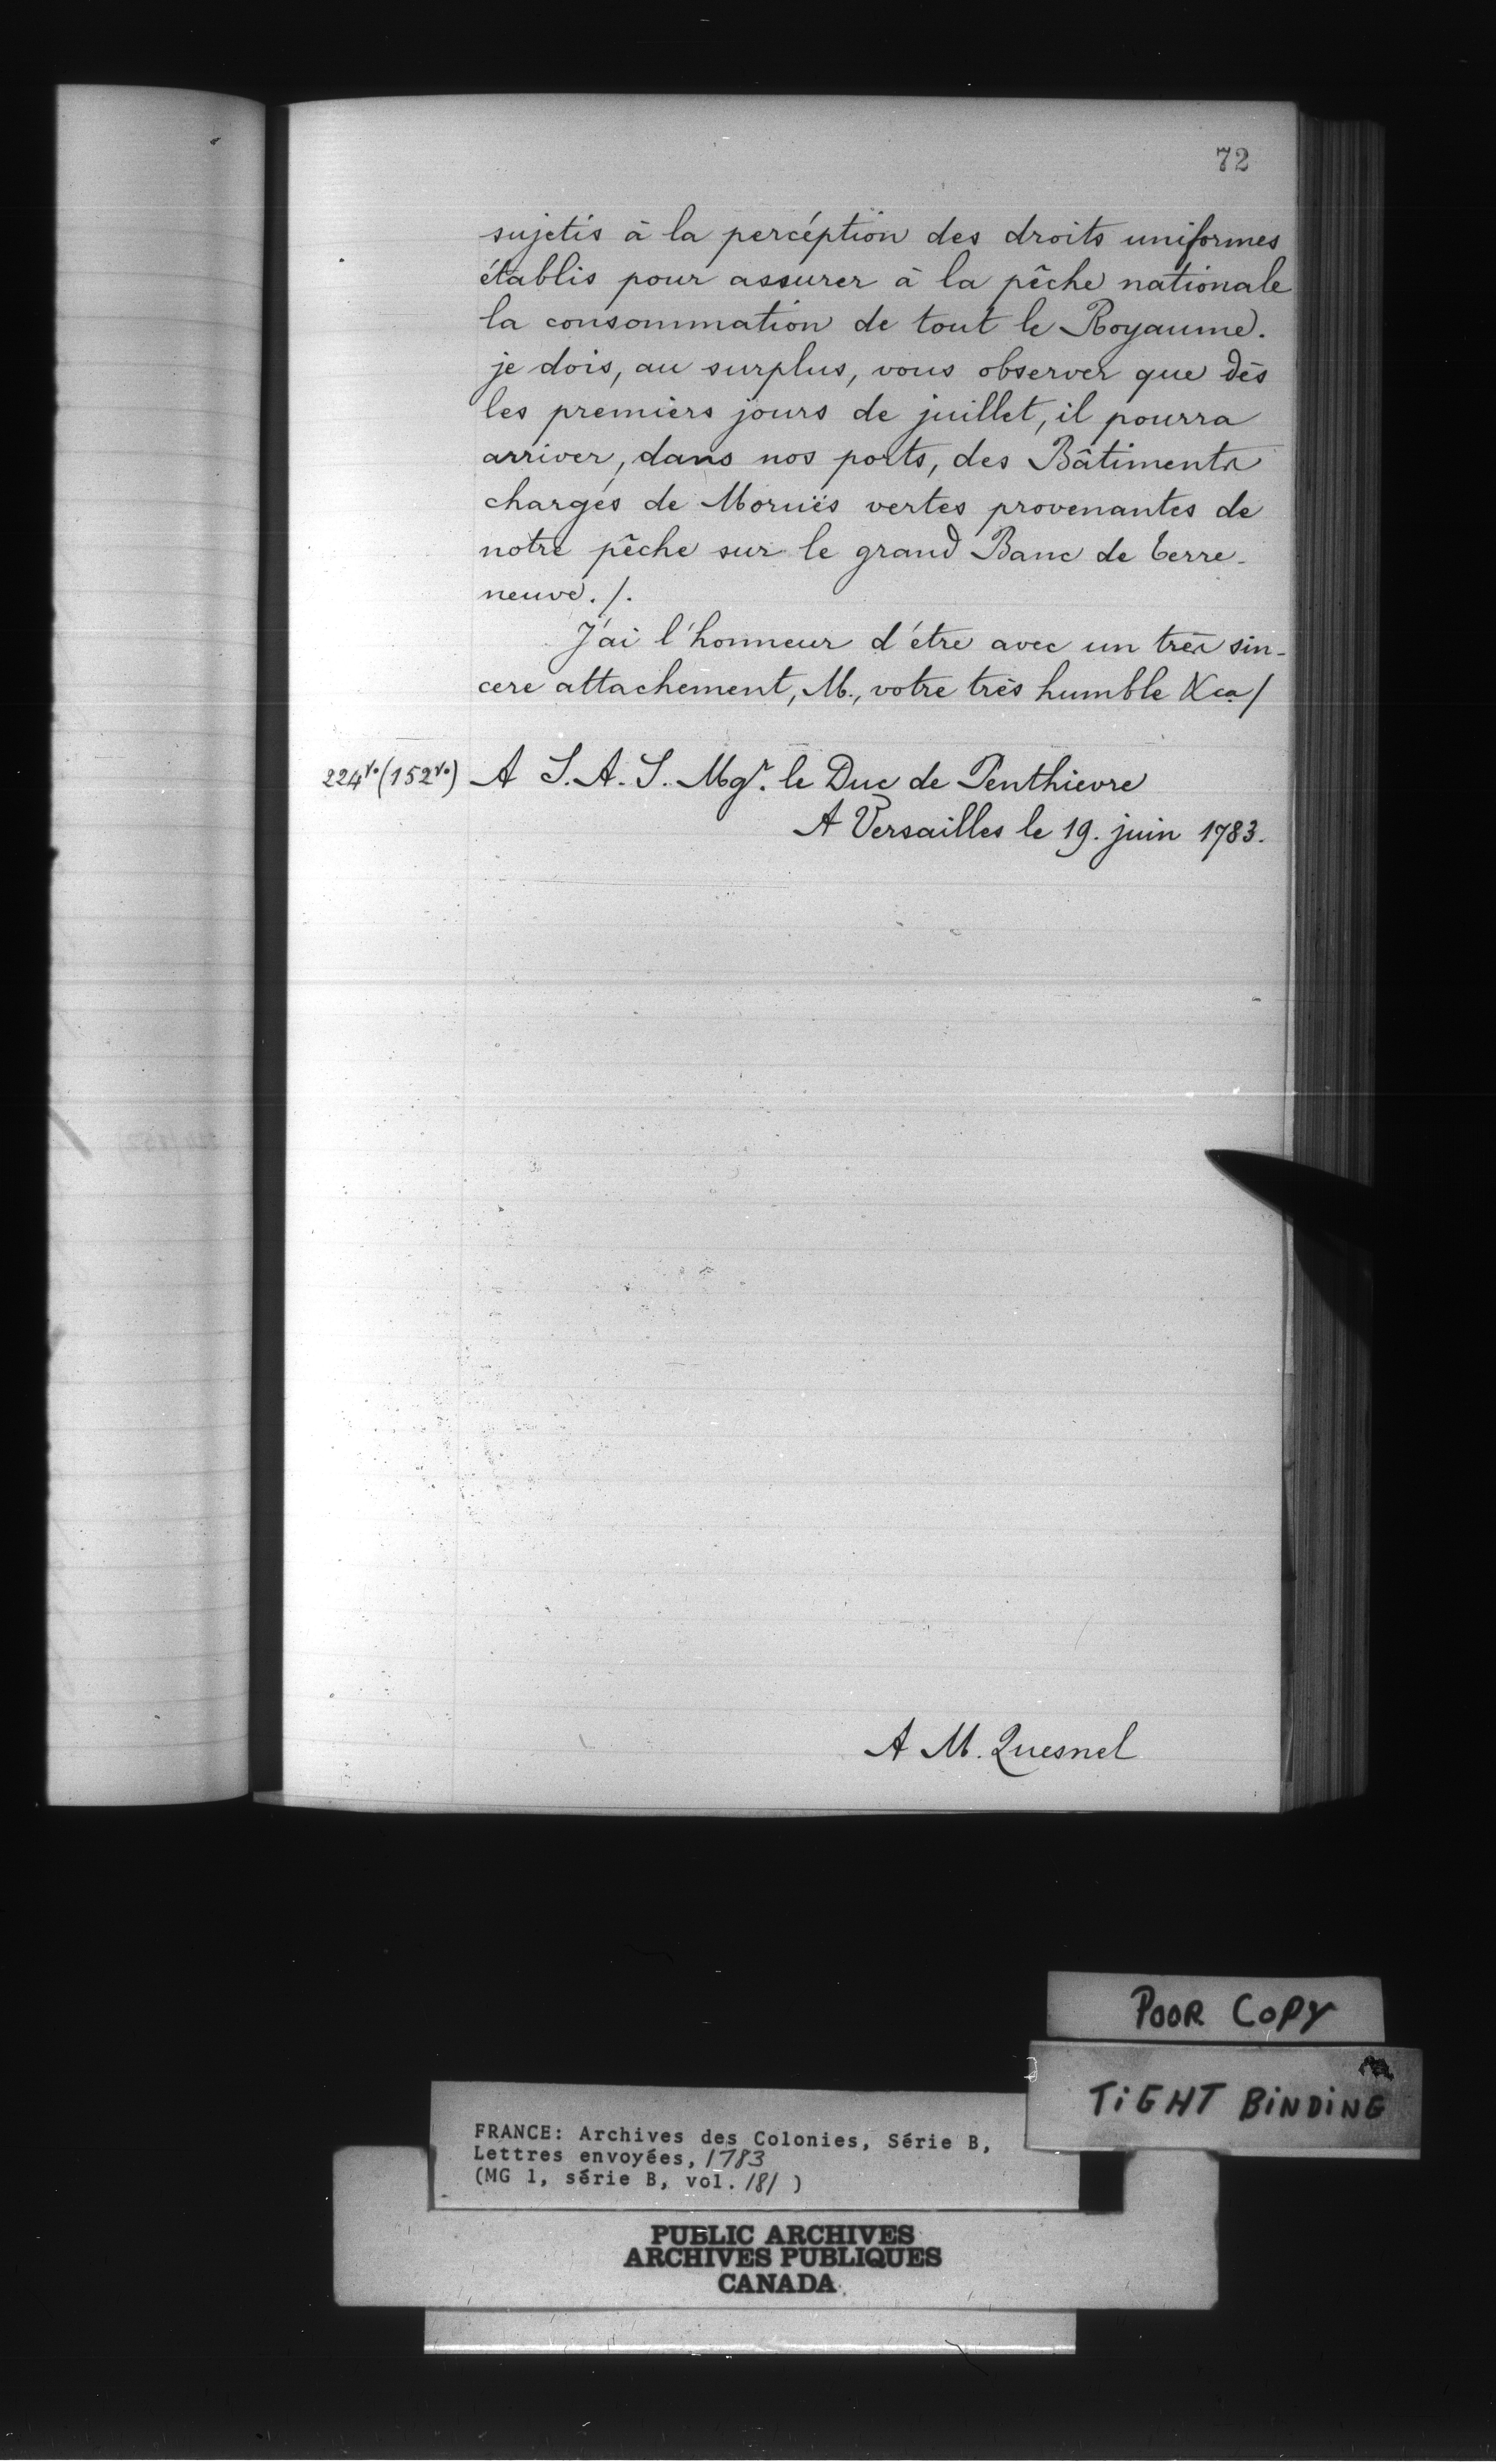 72
sujetis à la percéption des droits uniformes
établis pour assurer à la pêche nationale
la consommation de tout le Royaume.
je dois, au surplus, vous observer que dès
les premiers jours de juillet, il pourra
arriver, dans nos ports, des Bâtiments
chargés de Moruës vertes provenantes de
notre pêche sur le grand Banc de terre-
neuve. /.
J'ai l'honneur d'être avec un très sin-
cere attachement, M., votre très humble &ca /
224vo (152vo) A S. A. S. Mgr. le Duc de Penthievre
A Versailles le 19. juin 1783.
A M. Quesnel
POOR COPY
TIGHT BINDING
FRANCE: Archives des Colonies, Série B,
Lettres envoyées, 1783
(MG 1, série B, vol. 181 )
PUBLIC ARCHIVES
ARCHIVES PUBLIQUES
CANADA